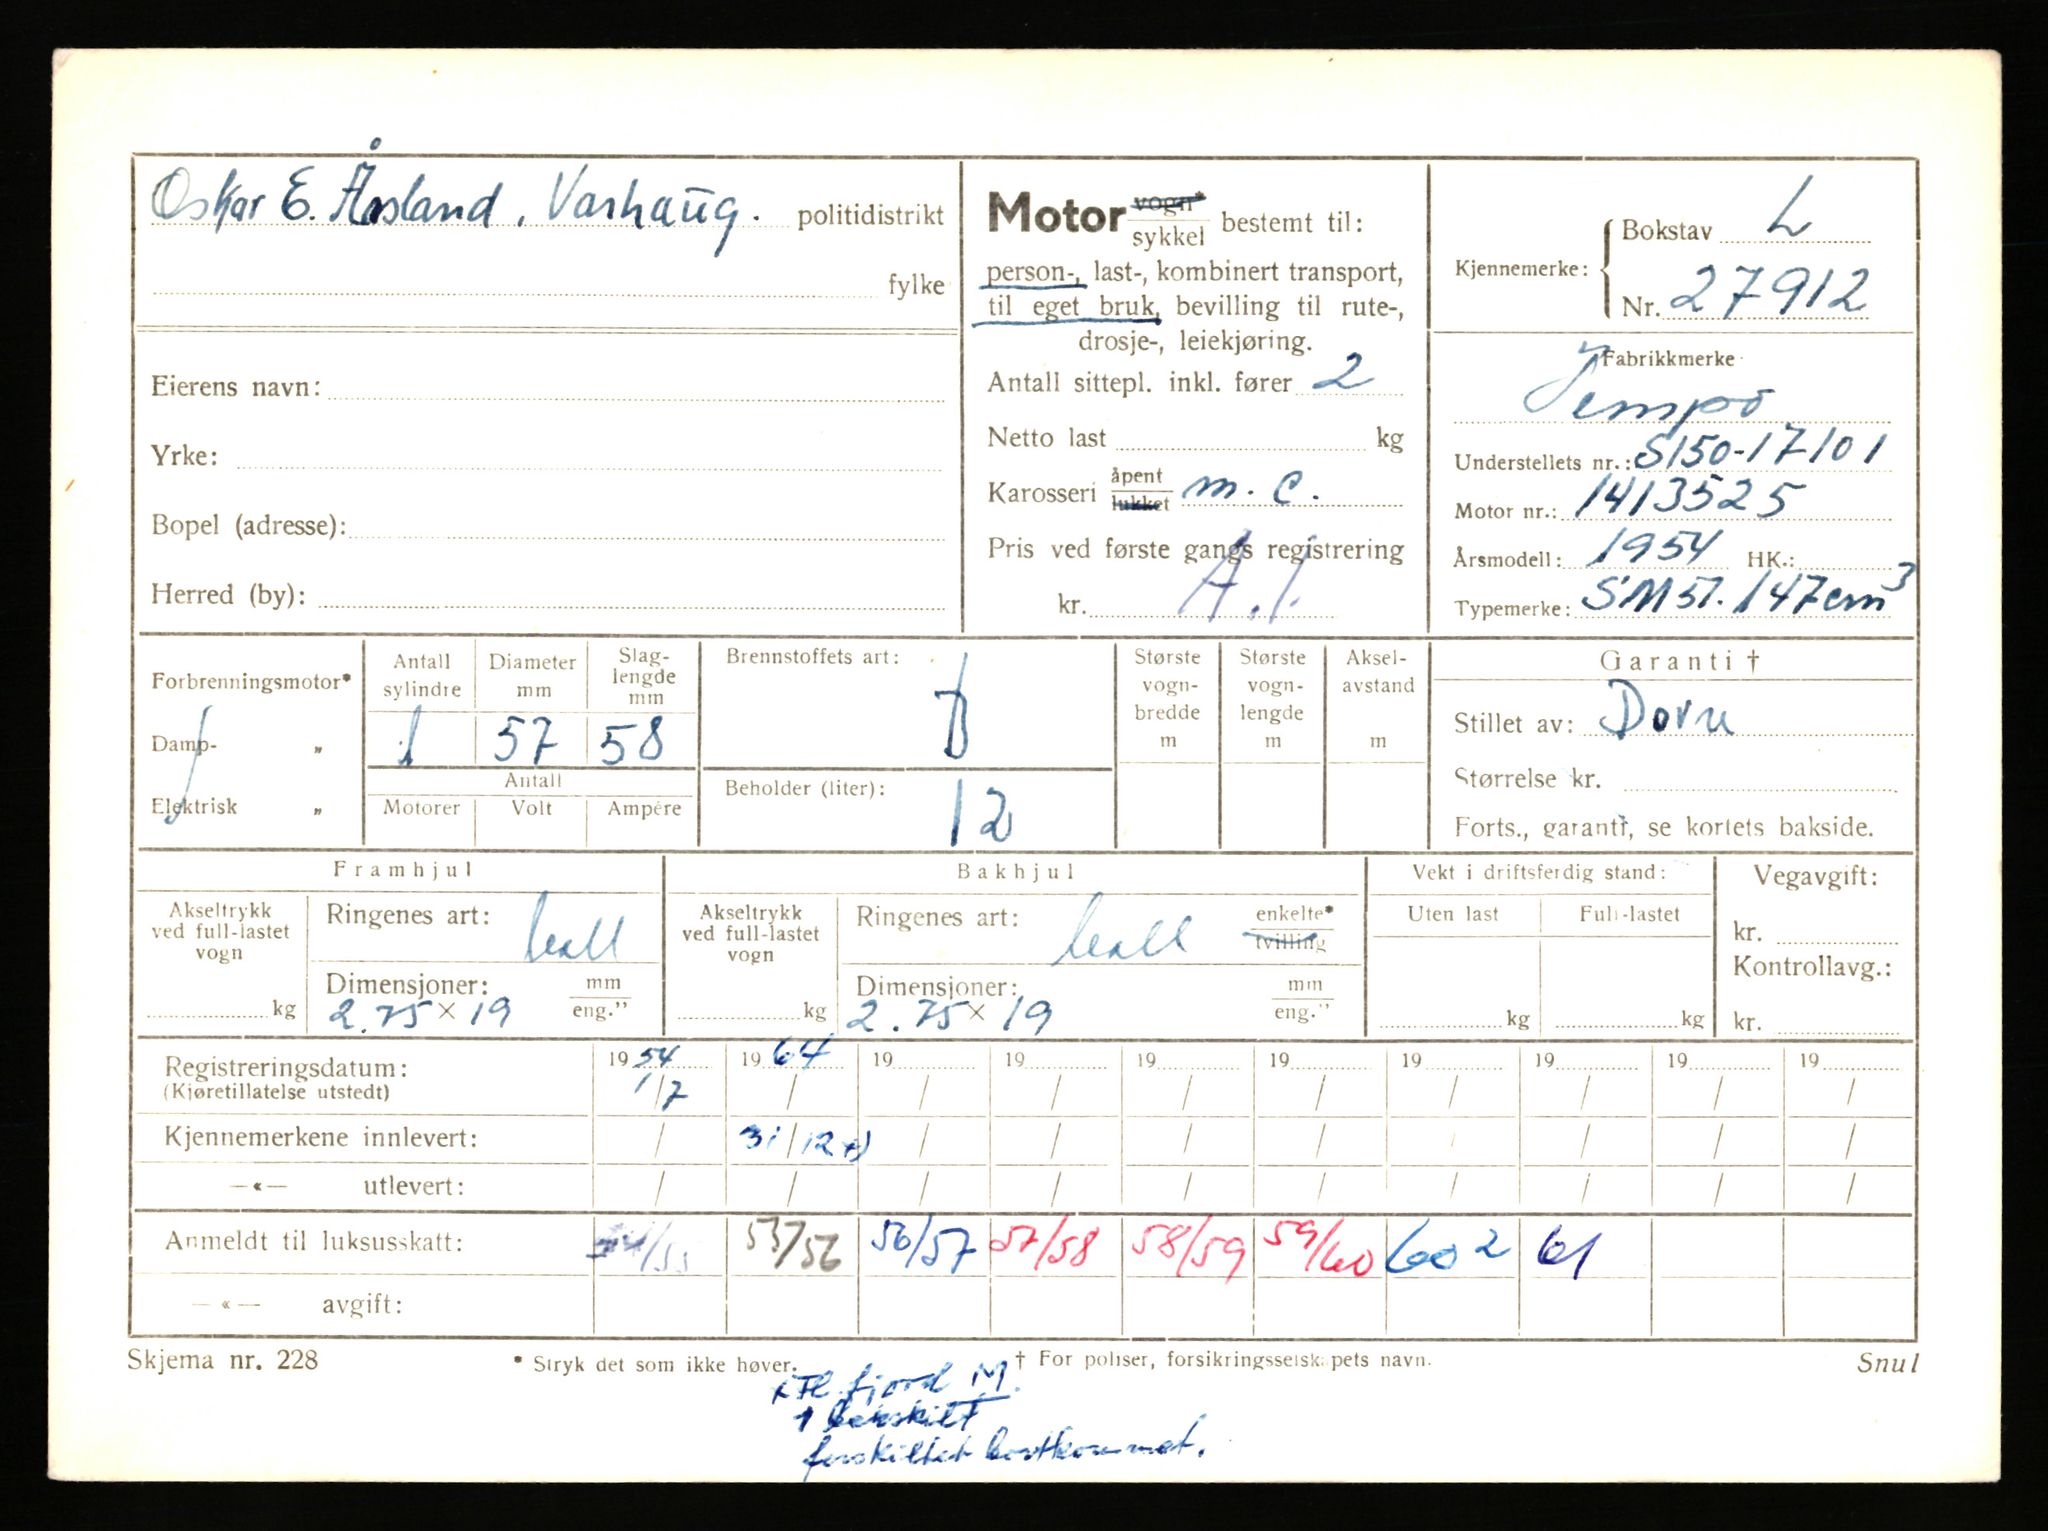 Oskar E. Åsland, Varhaug. politidistrikt
fylke
Eierens navn:
Yrke:
Bopel (adresse):
Herred (by):
Motor vogn* sykkel bestemt til:
person-, last-, kombinert transport,
til eget bruk, bevilling til rute-,
drosje-, leiekjøring.
Antall sittepl. inkl. fører 2
Netto last kg
Karosseri åpent lukket m.c.
Pris ved første gangs registrering
kr. A.I.
Kjennemerke: Bokstav L
Nr. 27912
Fabrikkmerke
Tempo
Understellets nr.: S150-17101
Motor nr.: 1413525
Årsmodell: 1954 HK.:
Typemerke: SM51. 147cm³
Forbrenningsmotor*
Damp- „
Elektrisk „
Antall sylindre 1
Diameter mm 57
Slaglengde mm 58
Antall
Motorer Volt Ampére
Brennstoffets art: B
Beholder (liter): 12
Største vogn-bredde m
Største vogn-lengde m
Aksel-avstand m
Garanti †
Stillet av:
Størrelse kr.
Forts., garanti, se kortets bakside.
Framhjul
Akseltrykk ved full-lastet vogn kg
Ringenes art:
Dimensjoner: mm eng."
2.75 × 19
Bakhjul
Akseltrykk ved full-lastet vogn kg
Ringenes art: enkelte* tvilling
Dimensjoner: mm eng."
2.75 × 19
Vekt i driftsferdig stand:
Uten last kg
Full-lastet kg
Vegavgift:
kr.
Kontrollavg.:
kr.
Registreringsdatum: 1954 1964 19 19 19 19 19 19 19 19
(Kjøretillatelse utstedt) 1/7 / / / / / / / / /
Kjennemerkene innlevert: / 31/12 x) / / / / / / / /
—«— utlevert: / / / / / / / / / /
Anmeldt til luksusskatt: 54/55 55/56 56/57 57/58 58/59 59/60 60 2 61
—«— avgift:
Skjema nr. 228 * Stryk det som ikke høver. † For poliser, forsikringsselskapets navn. Snul
fjord M.
1 bakskilt
forskiltet bortkommet.